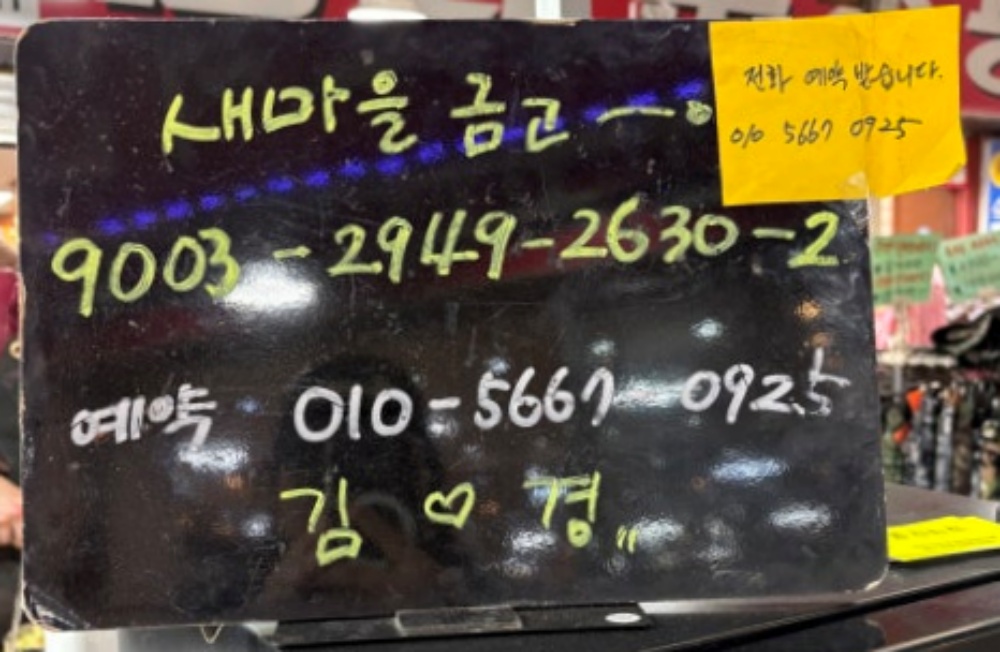 새마을 금고 —∘
9003-2949-2630-2
예약 010-5667 0925
김 ♡ 경 〃
전화 예약 받습니다.
010 5667 0925